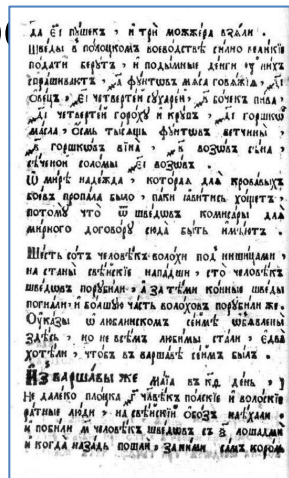 да єі пꙋшекъ , и три можжєра взѧли .
Шведы в полоцкомъ воеводствѣ силно великїѧ
подати берꙋтъ , и подымные денги ꙋ нихъ
спрашиваютъ , фꙋнтовъ мѧса говѧжїѧ ,
ѻвецъ , єі четвертей сꙋхарей , бочекъ пива ,
ді четвертей горохꙋ и крꙋпъ , ді горшкѡ
масла , ѻсмь тысѧщь фꙋнтѡвъ ветчины ,
в горшковъ вїна , возѡвъ сѣна ,
сѣченой соломы єі возѡвъ .
Ѿ мирѣ надежда , которая длѧ кровавыхъ
боевъ пропала было , паки ꙗвитись хощетъ ,
потомꙋ что ѿ шведѡвъ комисары длѧ
мирного договорꙋ сюда быть имѣютъ .
Шесть сотъ человѣкъ волохи под ницицами ,
на станы свѣискїе нападши , сто человѣкъ
шведѡвъ порꙋбили , а за тѣми конные шведы
погнали и болшꙋю часть волоховъ порꙋбили же .
Оуказы ѡ любьлинскомъ сеймѣ ѡбꙗвлены
здѣсь , но не всѣмъ любимы стали , єдва
хотѣли , чтобъ въ варшавѣ сеймъ былъ .
Из варшавы же маїа въ к҃д день , ꙋ
Не далеко плоцка члвѣкъ полскїе и волоскїе
ратные люди , на свѣискїй ѻбозъ наѣхали
и побили м человѣкъ шведѡвъ съ лошадми
и когда назадь пошли , за ними самъ корол